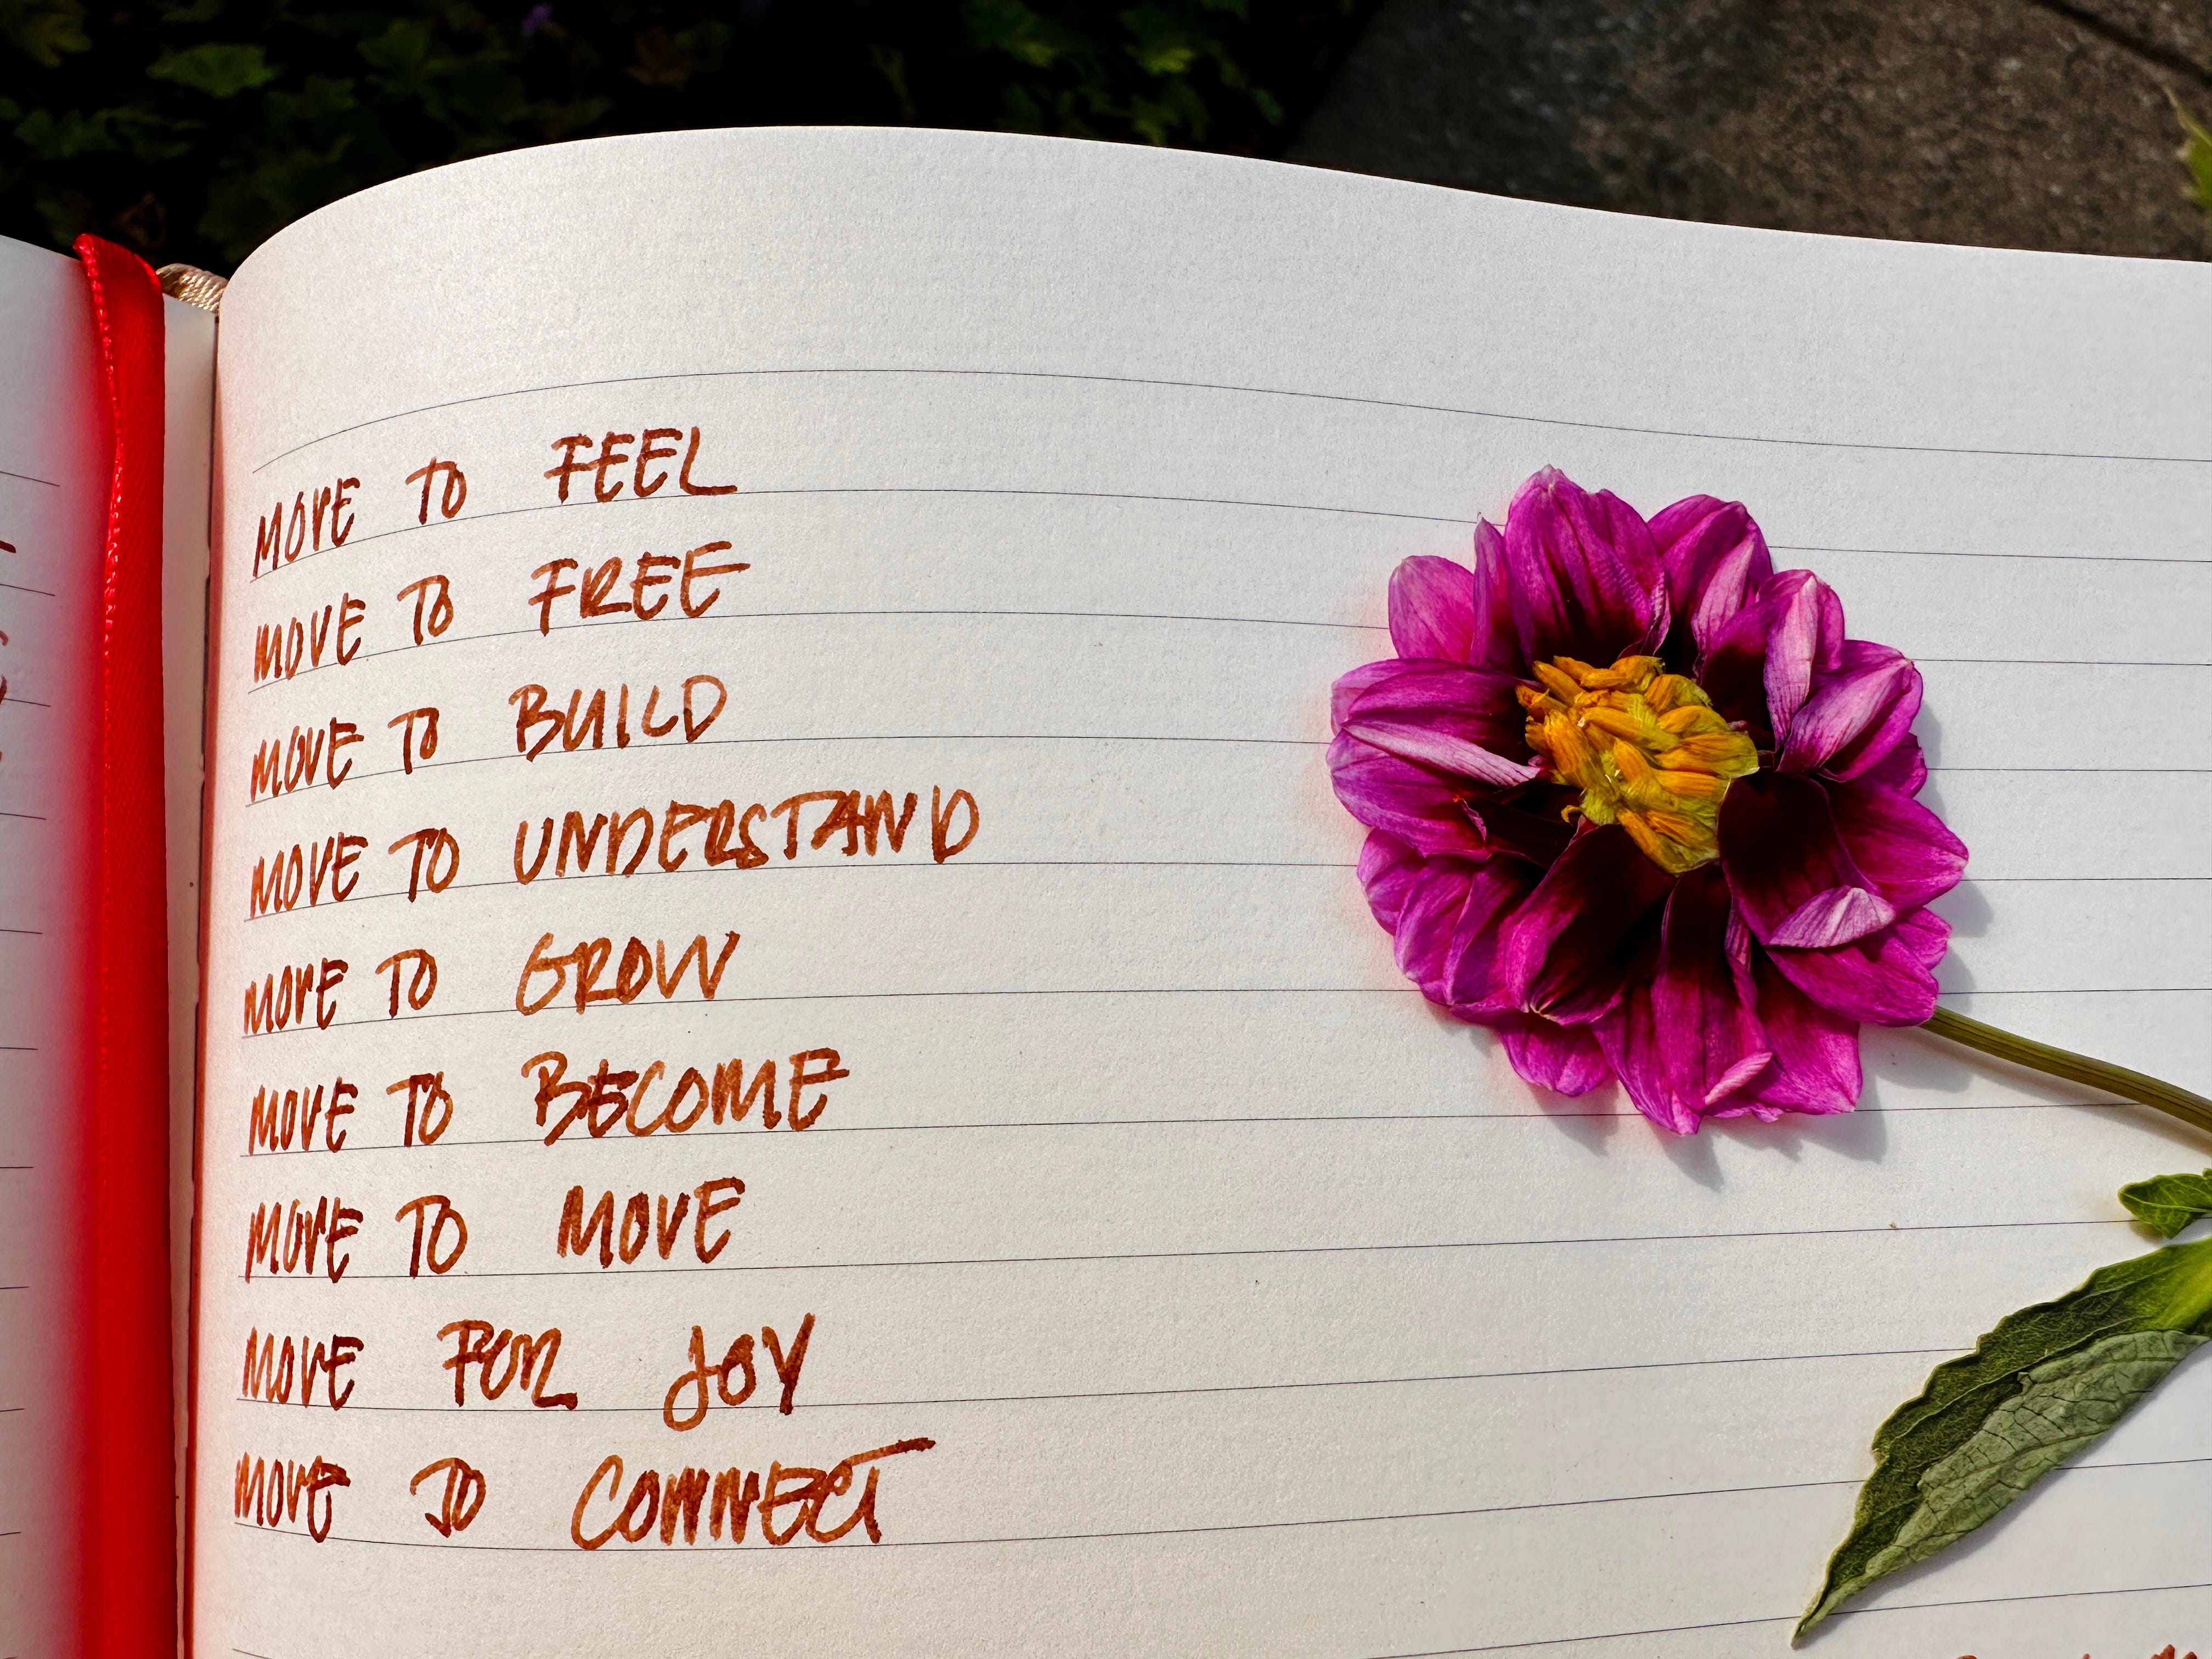 MOVE TO FEEL
MOVE TO FREE
MOVE TO BUILD
MOVE TO UNDERSTAND
MOVE TO GROW
MOVE TO BECOME
MOVE TO MOVE
MOVE FOR JOY
MOVE TO CONNECT